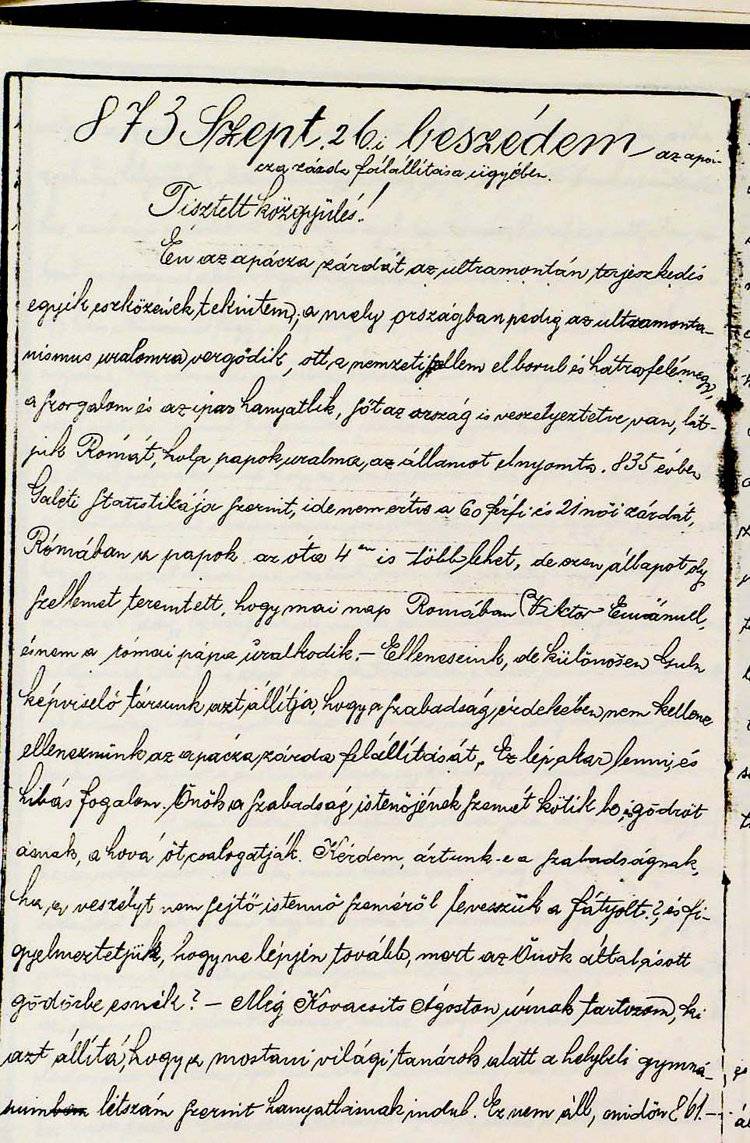 873 Szept. 26i beszédem az apá-
cza zárda fölállítása ügyében.
Tisztelt közgyülés!
Én az apácza zárdát az ultramontán terjeszkedés
egyik eszközének tekintem, a mely országban pedig az ultramonta-
nismus uralomra vergődik, ott a nemzeti szellem elborul és hátrafelé megy,
a szorgalom és az ipar hanyatlik, sőt az ország is veszélyeztetve van, lát-
juk Romát, hol a papok uralma, az államot elnyomta. 835 évben
Galéti statistikája szerint, ide nem értve a 60 férfi és 21 női zárdát,
Rómában a papok az óta 4 is több lehet, de ezen állapot oly
szellemet teremtett, hogy mai nap Romában Viktor Emánuel,
és nem a római pápa uralkodik. – Elleneseink, de különösen
képviselő társunk azt állítja, hogy a szabadság érdekében nem kellene
elleneznünk az apácza zárda felállítását. Ez lép akar lenni, és
hibás fogalom. Önök a szabadság istenőjének szemét kötik be, gödröt
ásnak, a hová őt csalogatják. Kérdem, ártunk-e a szabadságnak,
ha a veszélyt nem sejtő istennő szeméről levesszük a fátyolt?, és fi-
gyelmeztetjük, hogy ne lépjen tovább, mert az Önök által ásott
gödörbe esnék? – Még Kovacsits Ágoston úrnak tartozom, ki
azt állítá, hogy a mostani világi tanárok alatt a helybeli gymná-
létszám szerint hanyatlásnak indul. Ez nem áll, midőn 861.–